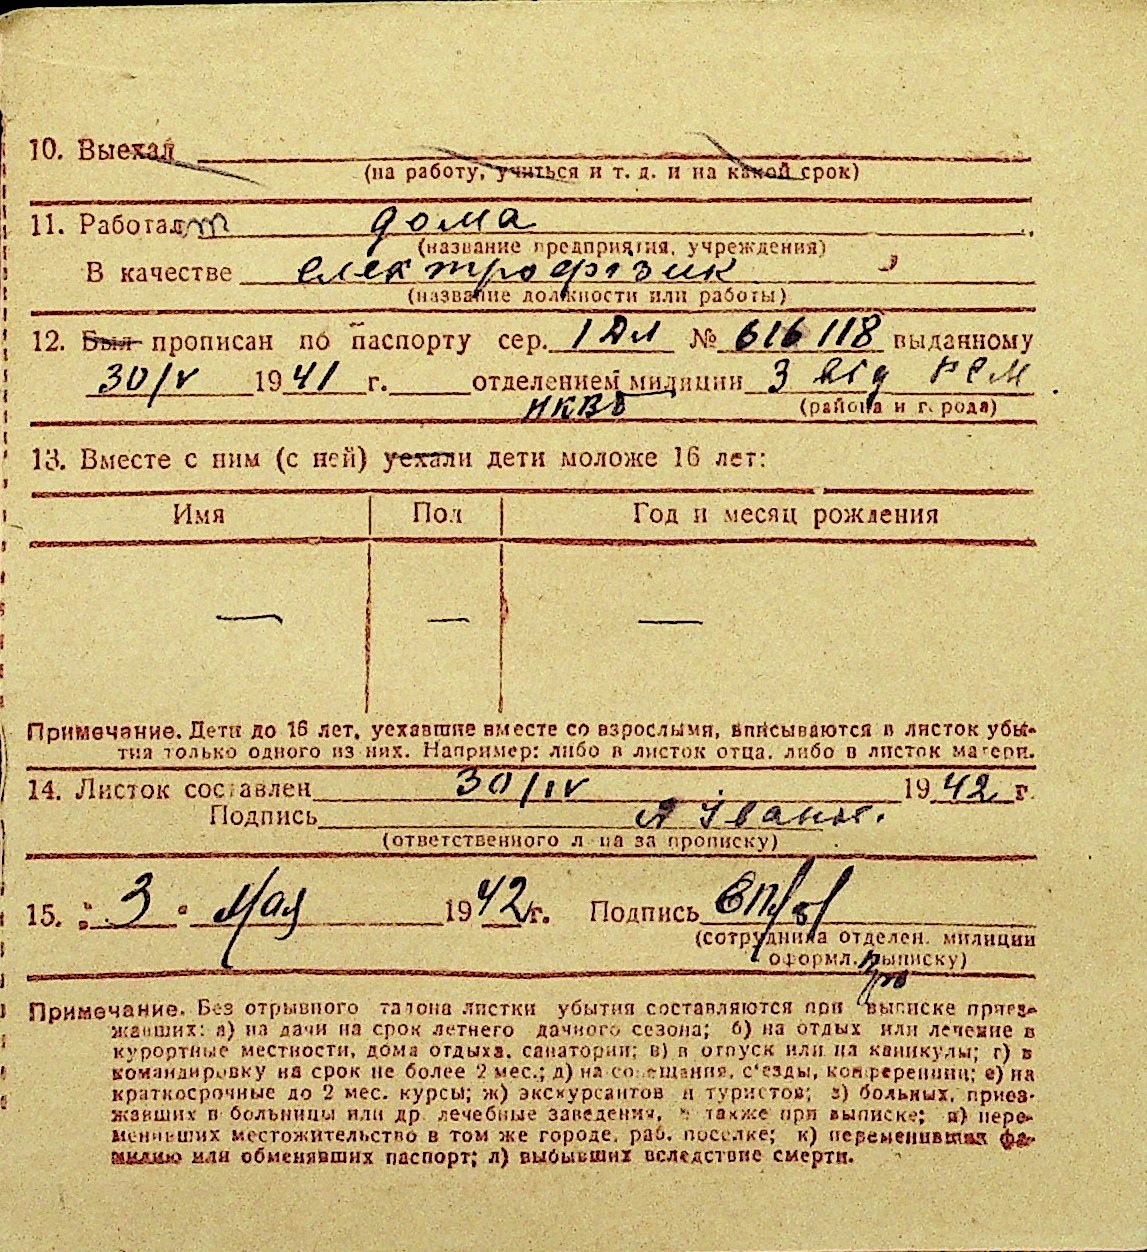 10. Выехал
(на работу, учиться и т. д. и на какой срок)
11. Работает дома
(название предприятия, учреждения)
В качестве електрофізик
(название должности или работы)
12. Был прописан по паспорту сер. 1 Дл № 616118 выданному
30/V 1941 г. отделением милиции 3 від РСМ
НКВД (района и города)
13. Вместе с ним (с ней) уехали дети моложе 16 лет:
Имя Пол Год и месяц рождения
— — —
Примечание. Дети до 16 лет, уехавшие вместе со взрослыми, вписываются в листок убы-
тия только одного из них. Например: либо в листок отца, либо в листок матери.
14. Листок составлен 30/IV 1942 г.
Подпись
(ответственного л-ца за прописку)
15. „ 3 " Мая 1942 г. Подпись
(сотрудника отделен. милиции
оформл. выписку)
Примечание. Без отрывного талона листки убытия составляются при выписке приез-
жавших: а) на дачи на срок летнего дачного сезона; б) на отдых или лечение в
курортные местности, дома отдыха, санатории; в) в отпуск или на каникулы; г) в
командировку на срок не более 2 мес.; д) на совещания, с'езды, конференции; е) на
краткосрочные до 2 мес. курсы; ж) экскурсантов и туристов; з) больных, приез-
жавших в больницы или др. лечебные заведения, а также при выписке; и) пере-
менивших местожительство в том же городе, раб. поселке; к) переменивших фа-
милию или обменявших паспорт; л) выбывших вследствие смерти.